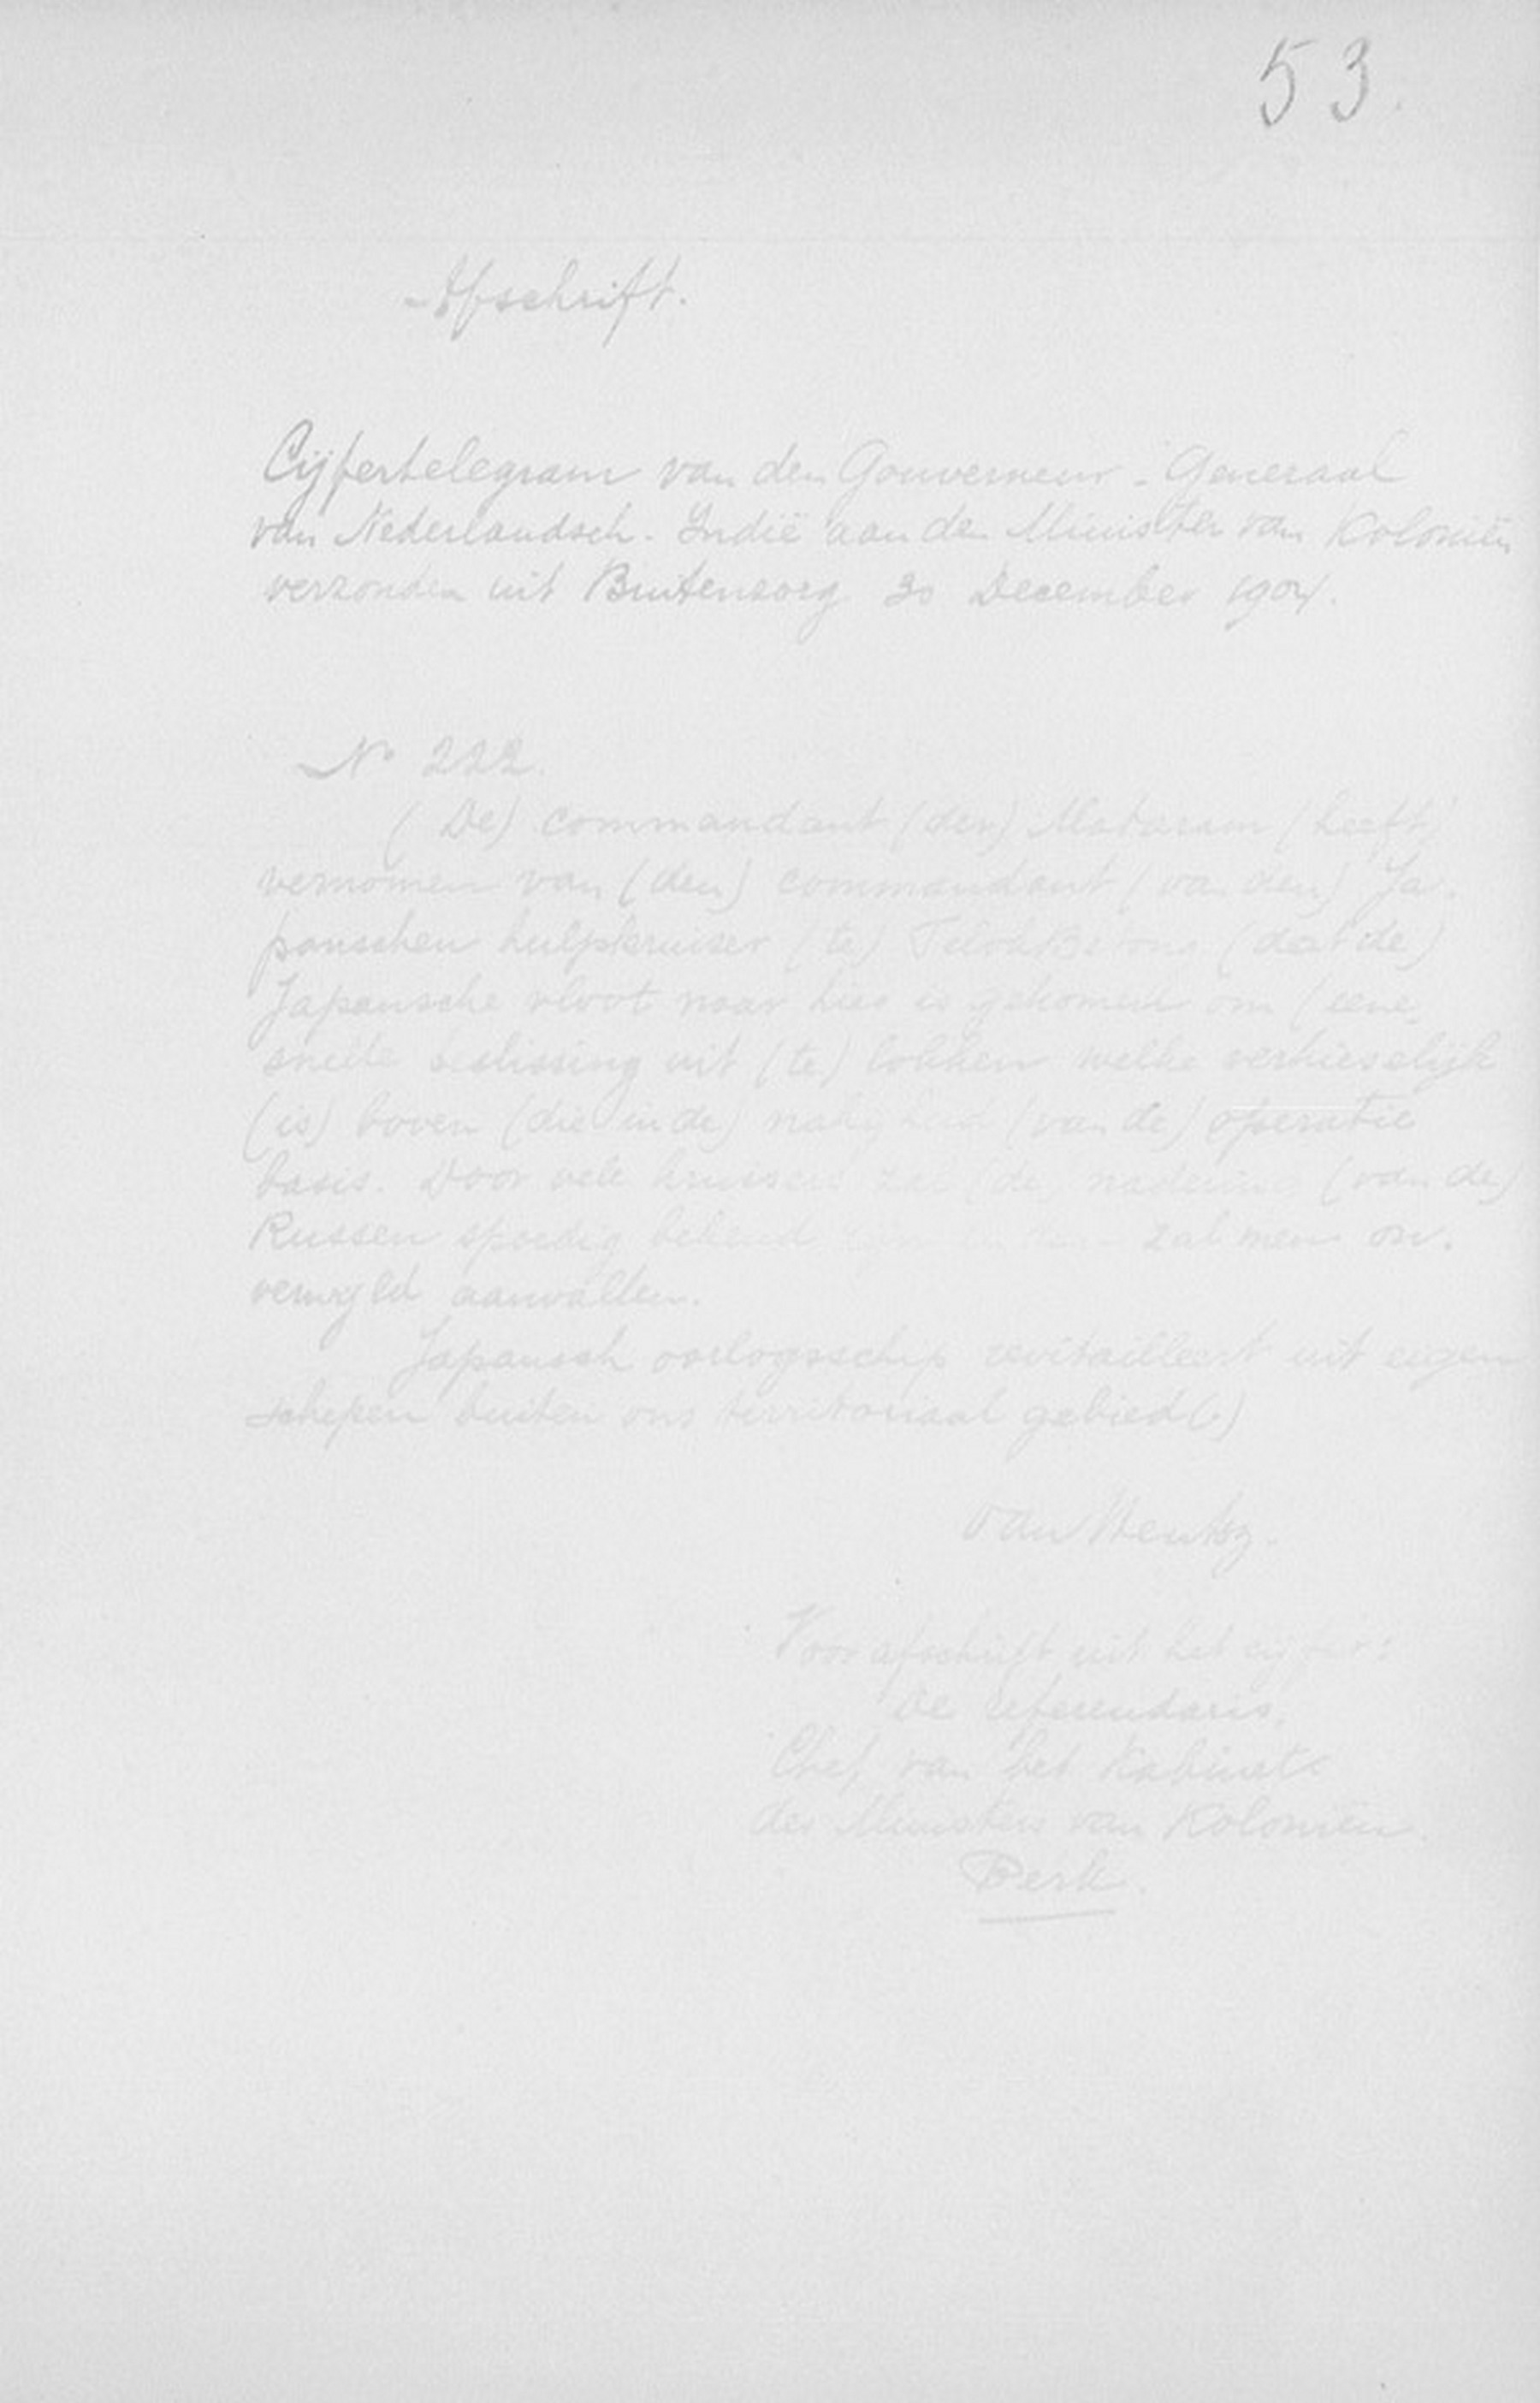 53.
Afschrift.
Cijfertelegram van den Gouverneur-Generaal
van Nederlandsch-Indië aan den Minister van Koloniën
verzonden uit Buitenzorg 30 December 1904.
No 222.
(De) commandant (den) Mataram (heeft)
vernomen van (den) commandant (van den) Ja-
panschen hulpkruiser (te) Telokbetong (dat de)
Japansche vloot naar hier is gekomen om (eene
snelle beslissing uit (te) lokken welke verkieselijk
(is) boven (die in de) nabijheid (van de) operatie
basis. Door vele kruisers zal (de) nadering (van de)
Russen spoedig bekend zijn zal men on-
verwijld aanvallen.
Japansch oorlogsschip revitailleert uit eigen
schepen buiten ons territoriaal gebied (.)
van Heutsz.
Voor afschrift uit het cijfer:
De referendaris,
Chef van het Kabinet
des Ministers van Koloniën